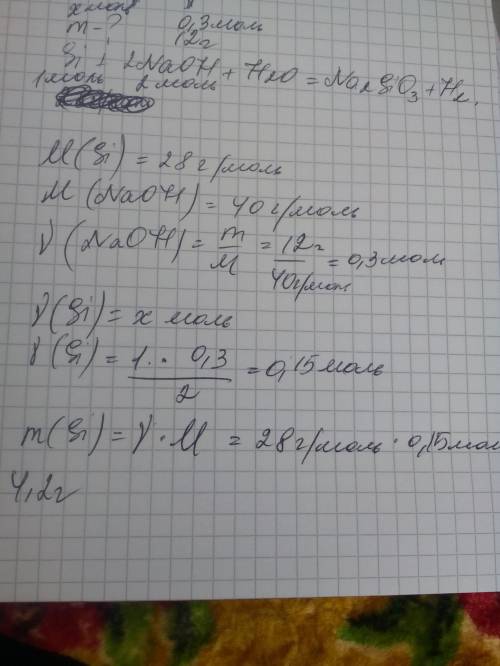 x моль
m-? 0,3 моль
12г
Si + 2NaOH + H2O = Na2SiO3 + H2
1 моль 2 моль
M(Si) = 28 г/моль
M(NaOH) = 40 г/моль
γ(NaOH) = m/M = 12г/40г/моль = 0,3 моль
γ(Si) = x моль
γ(Si) = 1 · 0,3/2 = 0,15 моль
m(Si) = γ · M = 28 г/моль · 0,15 мол
4,2г